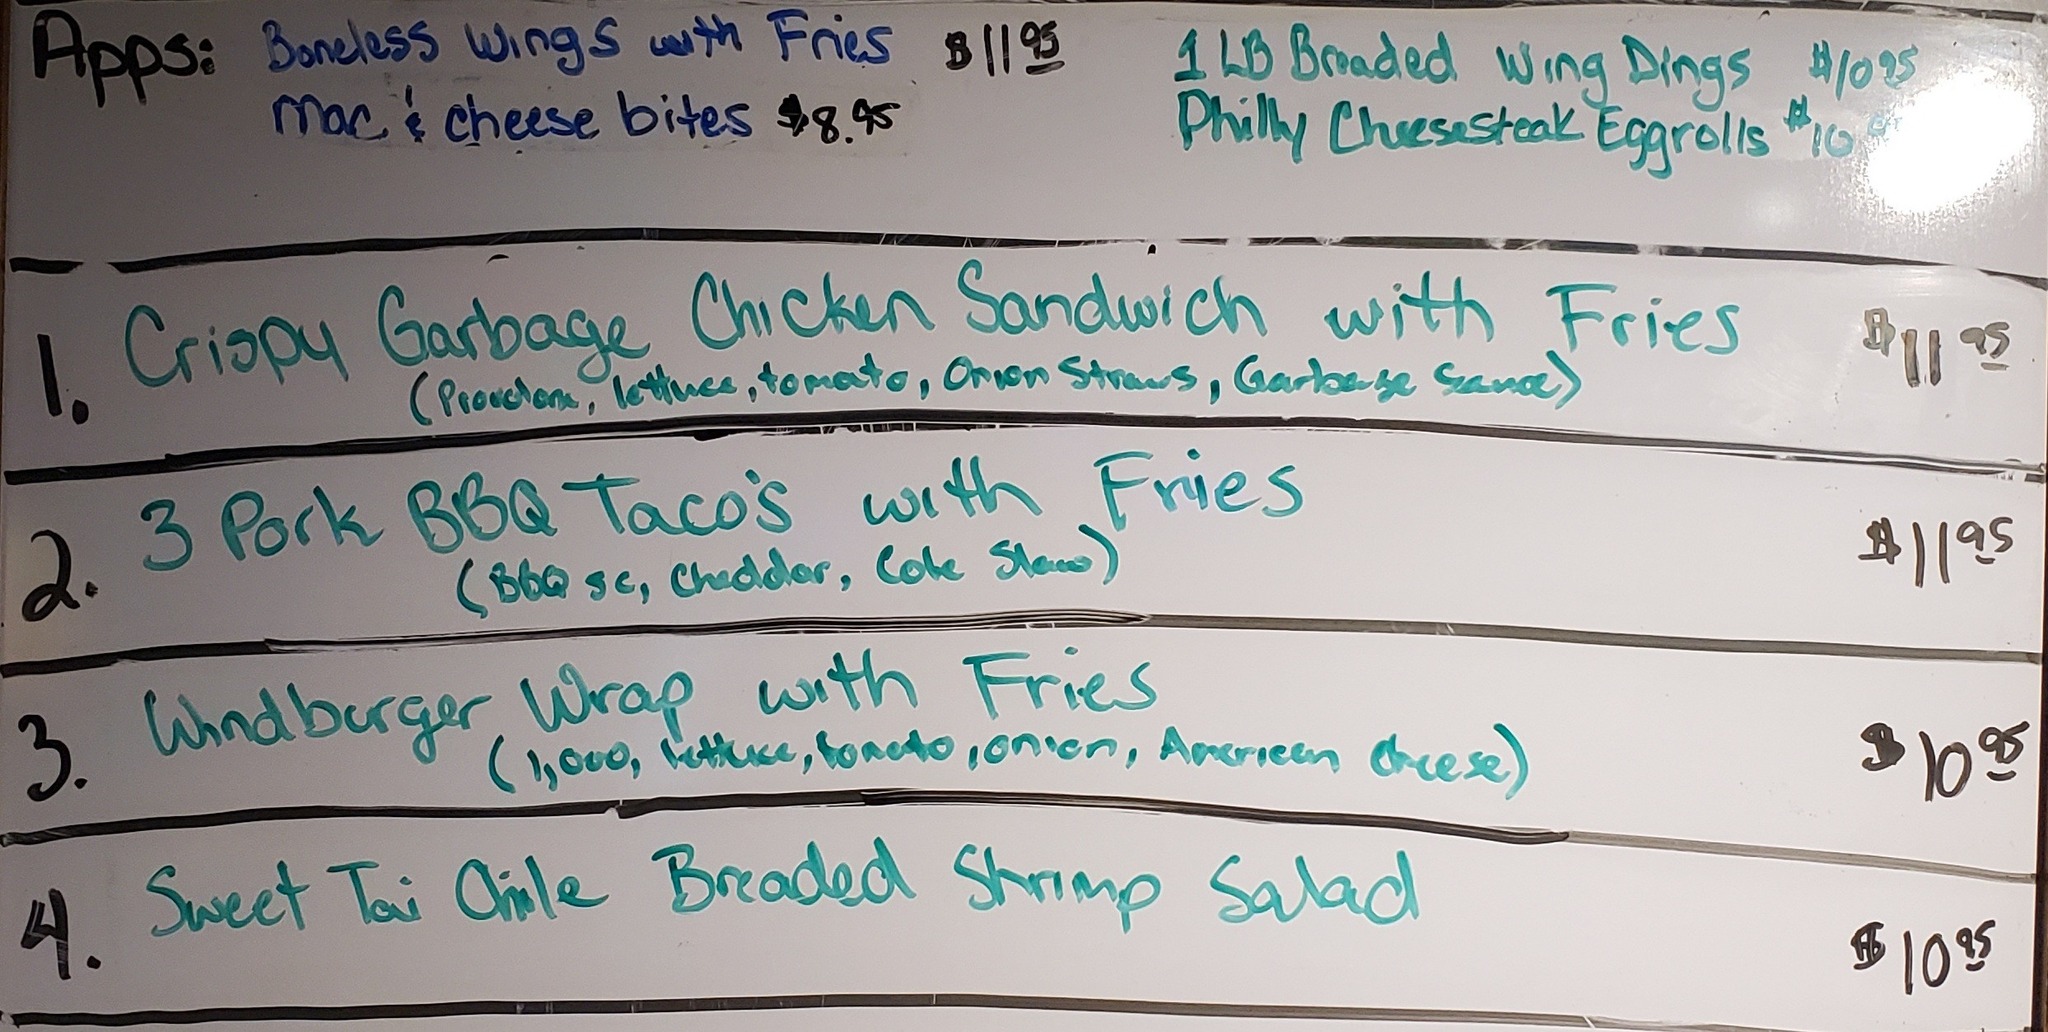 Apps: Boneless Wings with Fries $11 95
Mac & cheese bites $8.95
1 LB Breaded Wing Dings $10 95
Philly Cheesesteak Eggrolls $10
1. Crispy Garbage Chicken Sandwich with Fries $11 95
(Provolone, lettuce, tomato, Onion Straws, Garbage Sauce)
2. 3 Pork BBQ Taco's with Fries $11 95
(BBQ sc, Cheddar, Cole Slaw)
3. Windburger Wrap with Fries $10 95
(1,000, lettuce, tomato, onion, American Cheese)
4. Sweet Tai Chile Breaded Shrimp Salad $10 95